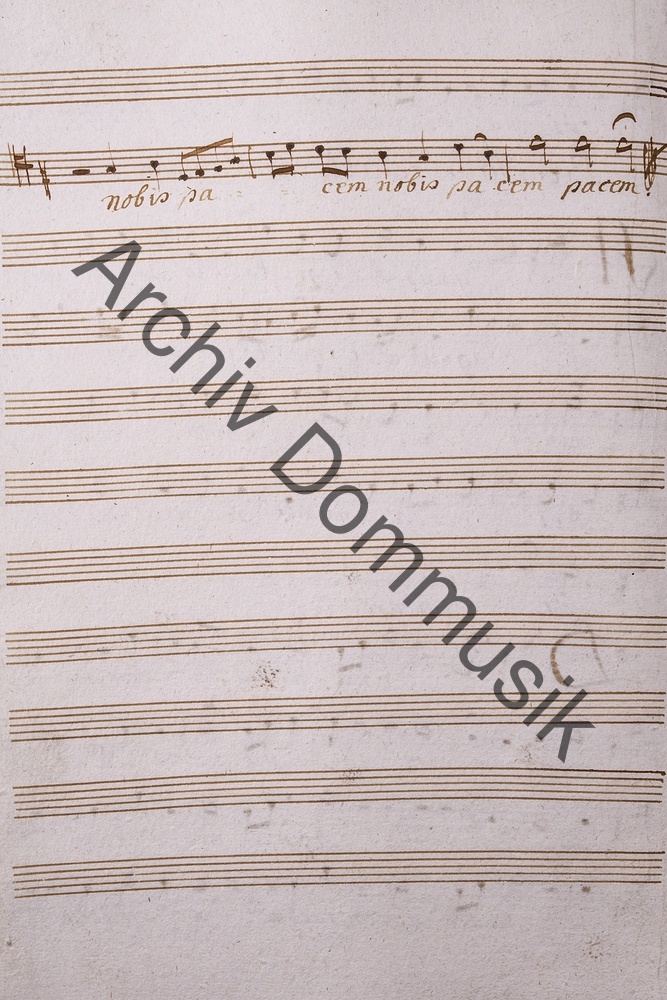 nobis pa cem nobis pa cem pacem
Archiv Dommusik